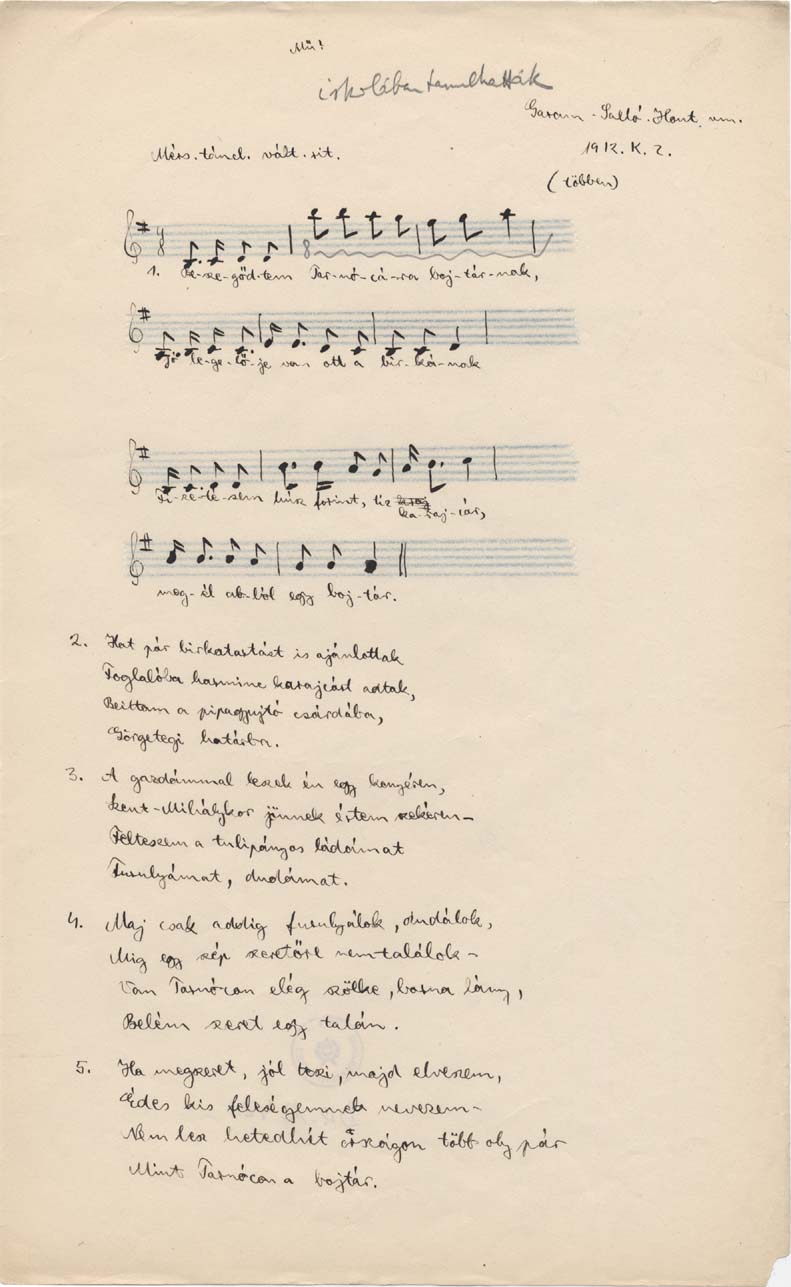 Mü!
iskolában tanulhatták
Garam-Salló. Hont vm.
Mérs. táncl. vált. rit.
1912. K. Z.
(többen)
1. Be-sze-gőd-tem Tar-nó-cá-ra boj-tár-nak,
Jó le-ge-lő-je van ott a bir-ká-nak
Fi-ze-té-sem húsz forint, tíz ka-raj-cár,
meg-él ab-ból egy boj-tár.
2. Hat pár birkatartást is ajánlottak
Foglalóba harminc karajcárt adtak,
Beittam a pipagyujtó csárdába,
Görgetegi határba.
3. A gazdámmal leszek én egy kenyéren,
Szent-Mihálykor jünnek értem szekéren-
Felteszem a tulipányos ládámat
Furulyámat, dudámat.
4. Maj csak addig furulyálok, dudálok,
Mig egy szép szeretőre nem találok-
Van Tarnócan elég szőlke, barna lány,
Belém szeret egy talán.
5. Ha megszeret, jól teszi, majd elveszem,
Édes kis feleségemnek nevezem-
Nem lesz hetedhét országon több oly pár
Mint Tarnócan a bojtár.